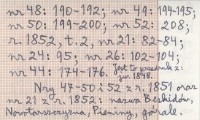 nr 48: 190-192; nr 49: 194-195;
nr 50: 199-200; nr 52: 208;
r. 1852, t. 2, nr 21: 82-84;
nr 24: 95; nr 26: 102-104;
nr 44: 174-176. Jest to przedruk z:
jan 1848.
Nry 47-50 i 52 z r. 1851 oraz
nr 21 z r. 1852: nazwa Beskidów,
Nowotarszczyzna, Pieniny, górale.